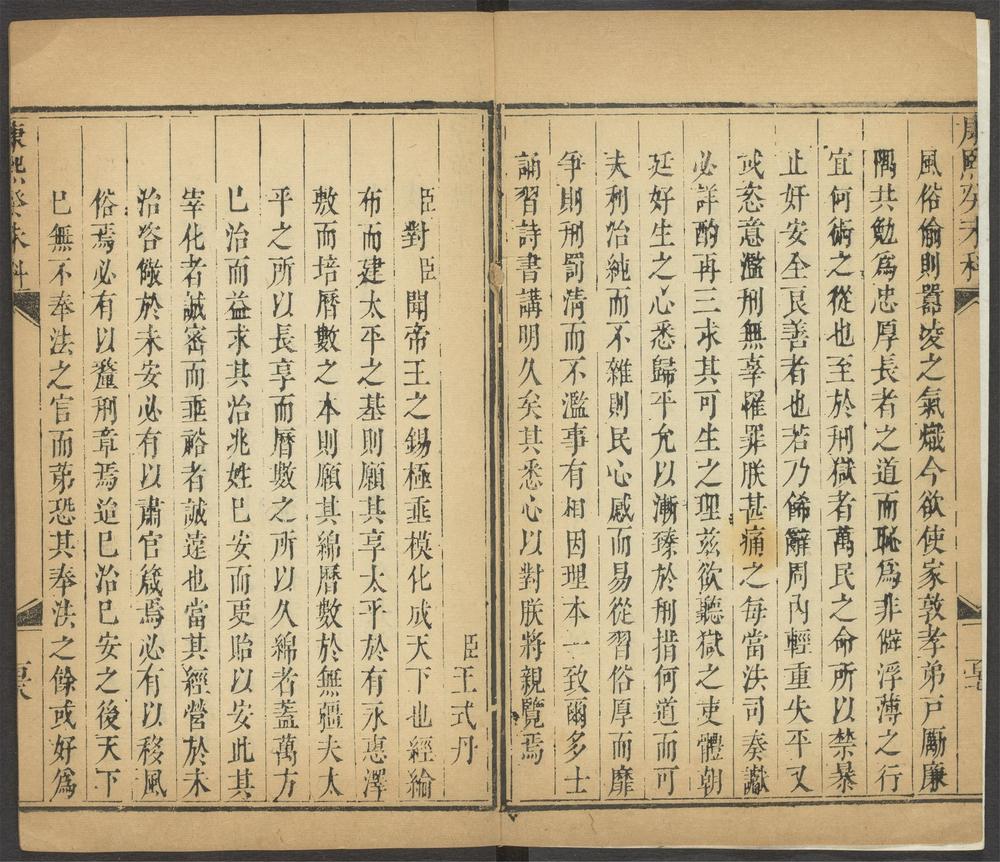 康熙癸未科
風俗偷則囂凌之氣熾今欲使家敦孝弟戸勵廉
隅共勉爲忠厚長者之道而恥爲非僻浮薄之行
宜何術之從也至於刑獄者萬民之命所以禁暴
止奸安全良善者也若乃餙辭周内輕重失平又
或恣意濫刑無辜罹罪朕甚痛之每當法司奏讞
必詳酌再三求其可生之理兹欲聽獄之吏體朝
廷好生之心悉歸平允以漸臻於刑措何道而可
夫利治純而不雜則民心感而易從習俗厚而靡
爭則刑罰清而不濫事有相因理本一致爾多士
誦習詩書講明久矣其悉心以對朕將親覽焉
臣王式丹
臣對臣聞帝王之錫極垂模化成天下也經綸
布而建太平之基則願其享太平於有永惠澤
敷而培曆數之本則願其綿曆數於無疆夫太
平之所以長享而曆數之所以久綿者葢萬方
巳治而益求其治兆姓巳安而更貽以安此其
宰化者誠密而垂裕者誠遠也當其經營於未
治咨儆於未安必有以肅官箴焉必有以移風
俗焉必有以釐刑章焉迨巳治巳安之後天下
巳無不奉法之官而苐恐其奉法之餘或好爲
康熙癸未科